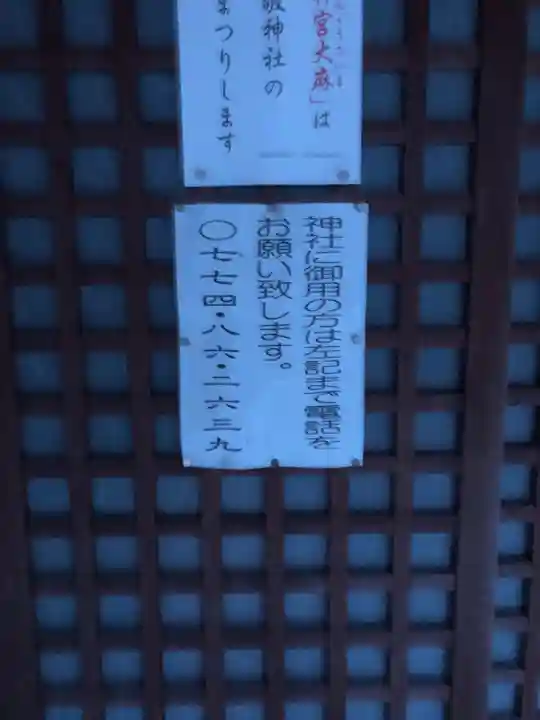 宮大麻」は
神社の
まつりします
神社に御用の方は左記まで電話を
お願い致します。
〇七七四・八六・二六三九